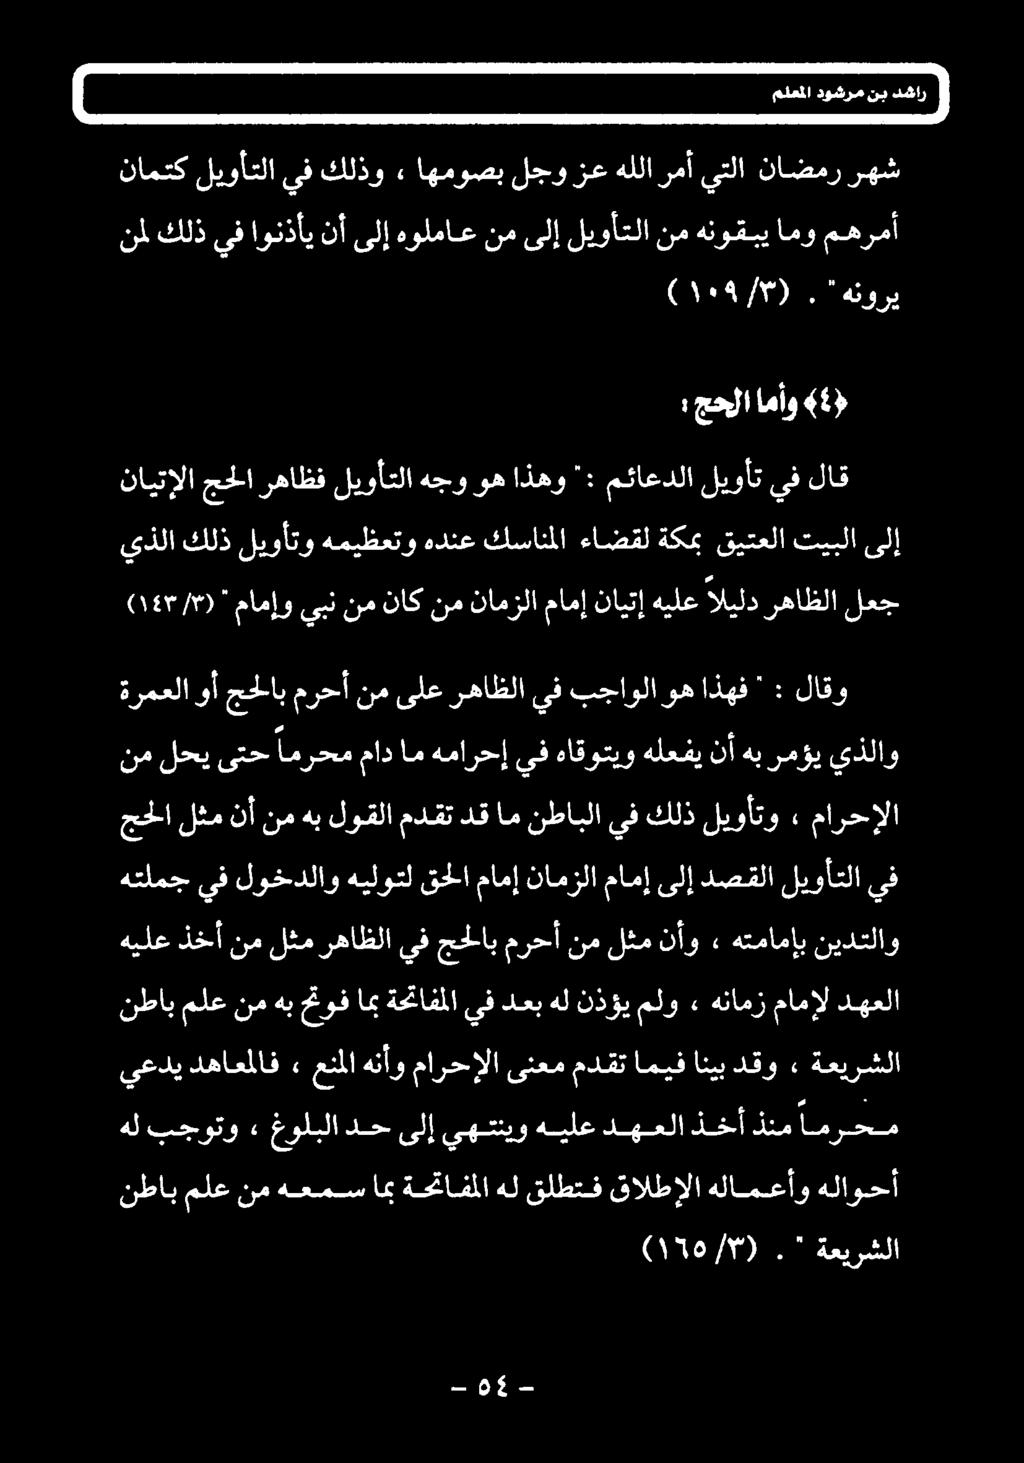 راشد بن مرشود المعلم
شهر رمضان التي أمر الله عز وجل بصومها ، وذلك في التأويل كتمان
أمرهم وما يبقونه من التأويل إلى من عاملوه إلى أن يأذنوا في ذلك لمن
يرونه " . (٣/ ١٠٩ )
﴿٤﴾ وأما الحج :
قال في تأويل الدعائم : " وهذا هو وجه التأويل فظاهر الحج الإتيان
إلى البيت العتيق بمكة لقضاء المناسك عنده وتعظيمه وتأويل ذلك الذي
جعل الظاهر دليلاً عليه إتيان إمام الزمان من كان من نبي وإمام " (٣/ ١٤٣)
وقال : " فهذا هو الواجب في الظاهر على من أحرم بالحج أو العمرة
والذي يؤمر به أن يفعله ويتوقاه في إحرامه ما دام محرماً حتى يحل من
الإحرام ، وتأويل ذلك في الباطن ما قد تقدم القول به من أن مثل الحج
في التأويل القصد إلى إمام الزمان إمام الحق لتوليه والدخول في جملته
والتدين بإمامته ، وأن مثل من أحرم بالحج في الظاهر مثل من أخذ عليه
العهد لإمام زمانه ، ولم يؤذن له بعد في المفاتحة بما فوتح به من علم باطن
الشريعة ، وقد بينا فيما تقدم معنى الإحرام وأنه المنع ، فالمعاهد يدعي
محرماً منذ أخذ العهد عليه وينتهي إلى حد البلوغ ، وتوجب له
أحواله وأعماله الإطلاق فتطلق له المفاتحة بما سمعه من علم باطن
الشريعة " . (٣/ ١٦٥)
- ٥٤ -